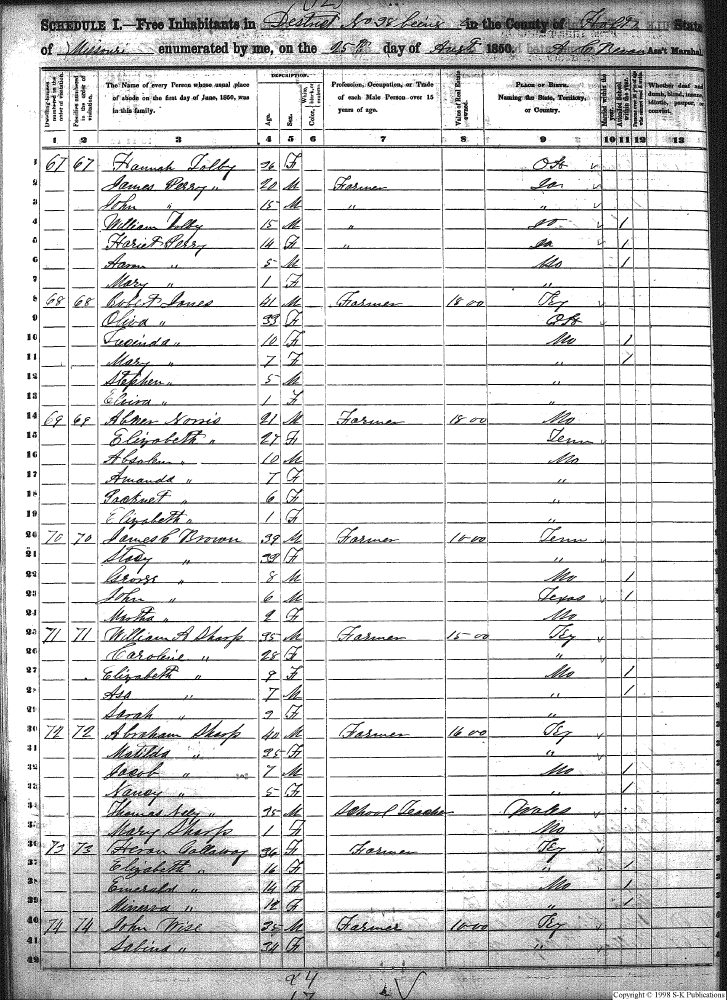 SCHEDULE I.—Free Inhabitants in District No 38 being in the County of Holt State
of Missouri enumerated by me, on the 25th day of Augt 1850. Ass't Marshal
Dwelling-houses numbered in the order of visitation.
Families numbered in the order of visitation.
The Name of every Person whose usual place of abode on the first day of June, 1850, was in this family.
DESCRIPTION.
Age.
Sex.
White, black, or mulatto. Color,
Profession, Occupation, or Trade of each Male Person over 15 years of age.
Value of Real Estate owned.
PLACE OF BIRTH. Naming the State, Territory, or Country.
Married within the year.
Attended School within the year.
Whether deaf and dumb, blind, insane, idiotic, pauper, or convict.
1 2 3 4 5 6 7 8 9 10 11 12 13
1 67 67 Hannah Tolby 36 F
2 James Perry " 20 M Farmer do
3 John " 15 M " "
4 William Tolby 15 M " do /
5 Hariet Perry 14 F " do /
6 Aaron " 5 M Mo /
7 Mary " 1 F
8 68 68 Jones 41 M Farmer 1800 Ky
9 Oliva " 33 F
10 Lucinda " 10 F Mo /
11 Mary " 7 F " /
12 Stephen " 5 M "
13 Elvira " 1 F "
14 69 69 Abner Norris 21 M Farmer 1800 Mo
15 Elizabeth " 27 F Tenn
16 10 M Mo
17 Amanda " 7 F "
18 " 6 F "
19 Elizabeth " 1 F "
20 70 70 James C Brown 39 M Farmer 1000 Tenn
21 Stacy " 39 F "
22 George " 8 M Mo /
23 John " 6 M Texas /
24 Martha " 2 F Mo
25 71 71 William A Sharp 35 M Farmer 1500 Ky
26 Caroline " 28 F "
27 Elizabeth " 9 F Mo /
28 Asa " 7 M " /
29 Sarah " 2 F "
30 72 72 Abraham Sharp 40 M Farmer 1600 Ky
31 Matilda " 35 F "
32 Jacob " 7 M Mo /
33 Nancy " 5 F " /
34 Thomas 35 M School Teacher Wales
35 Mary Sharp 1 F Mo
36 73 73 Gallaway 36 F Farmer Ky
37 Elizabeth " 16 F " /
38 Emerald " 14 F Mo /
39 Minerva " 12 F " /
40 74 74 John Wise 35 M Farmer 1000 Ky
41 Sabina " 34 F "
42
Copyright © 1998 S-K Publications